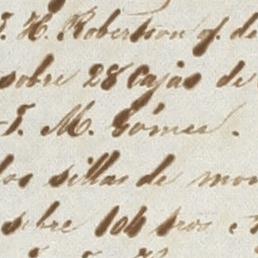 T. H. Robertson q. de
sobre 28 cajas de
T. M. Gómez.
los sillas de mon
sobre 104 bros